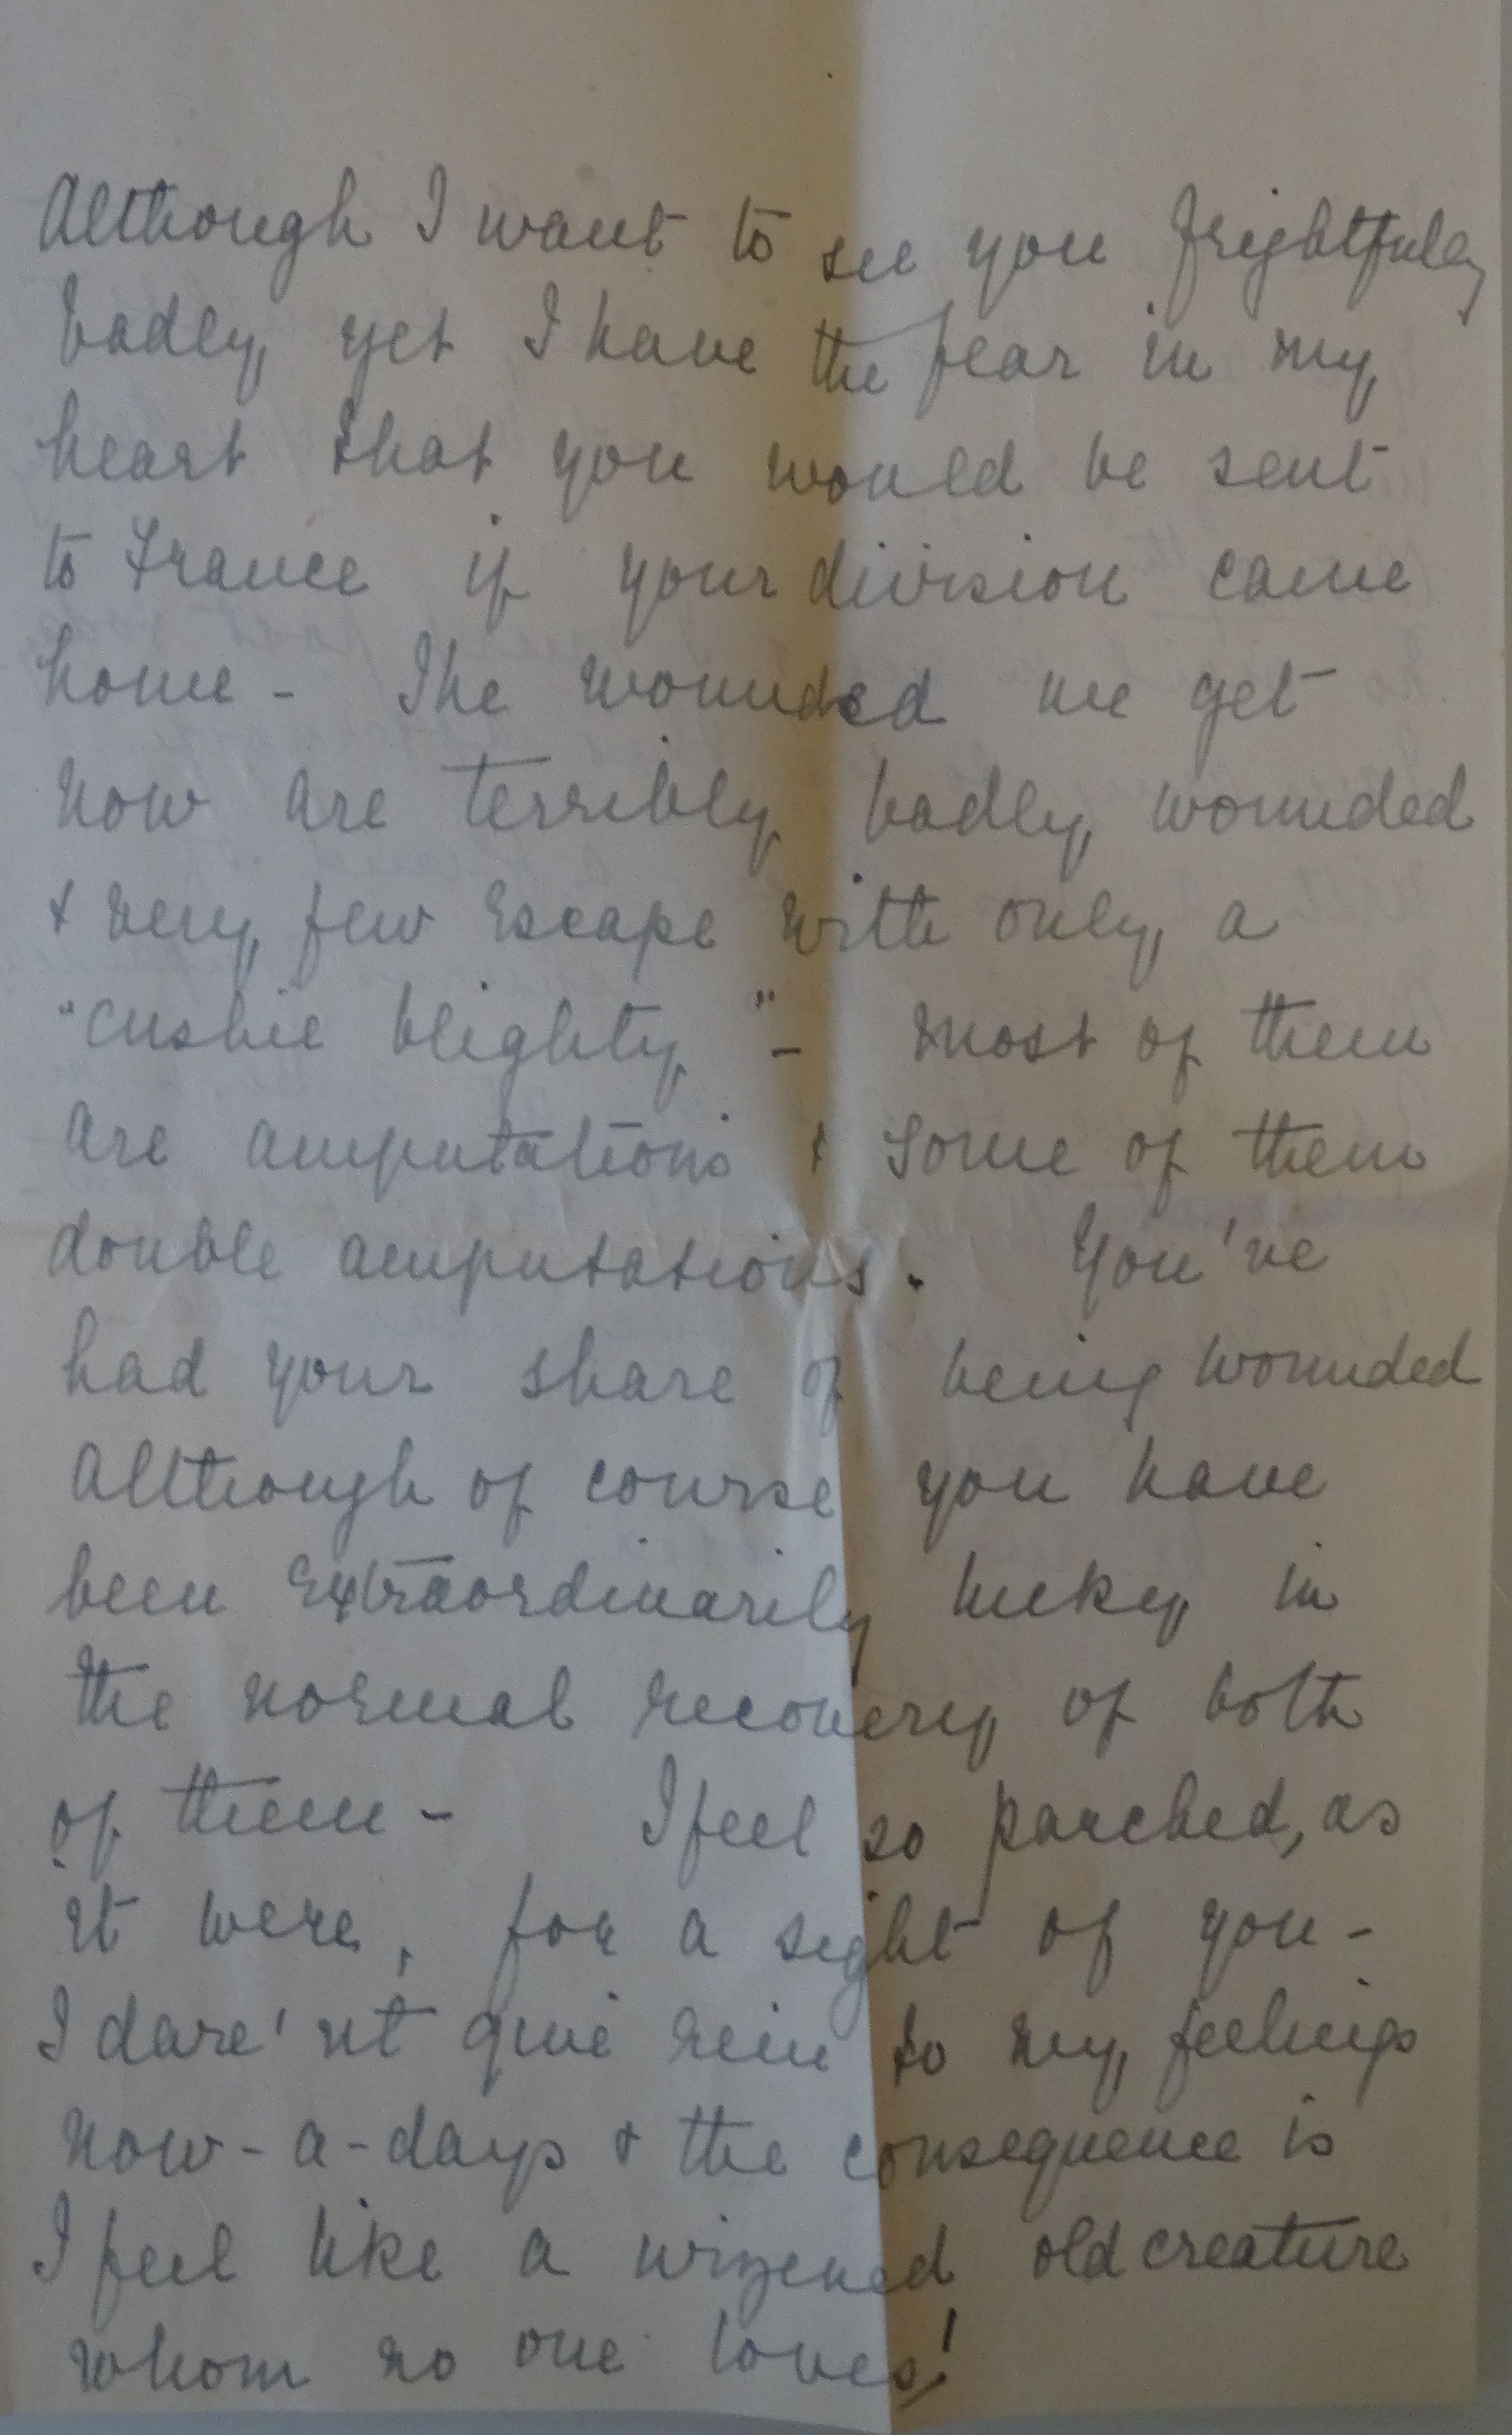 Although I want to see you frightfully
badly, yet I have the fear in my
heart that you would be sent
to France if your division came
home - The wounded we get
now are terribly badly wounded
& very few escape with only a
"cushie blighty" - most of them
are amputations & some of them
double amputations. You've
had your share of being wounded
although of course you have
been extraordinarily lucky in
the normal recovery of both
of them - I feel so parched, as
it were, for a sight of you -
I dare'nt give rein to my feelings
now-a-days & the consequence is
I feel like a wizened old creature
whom no one loves!